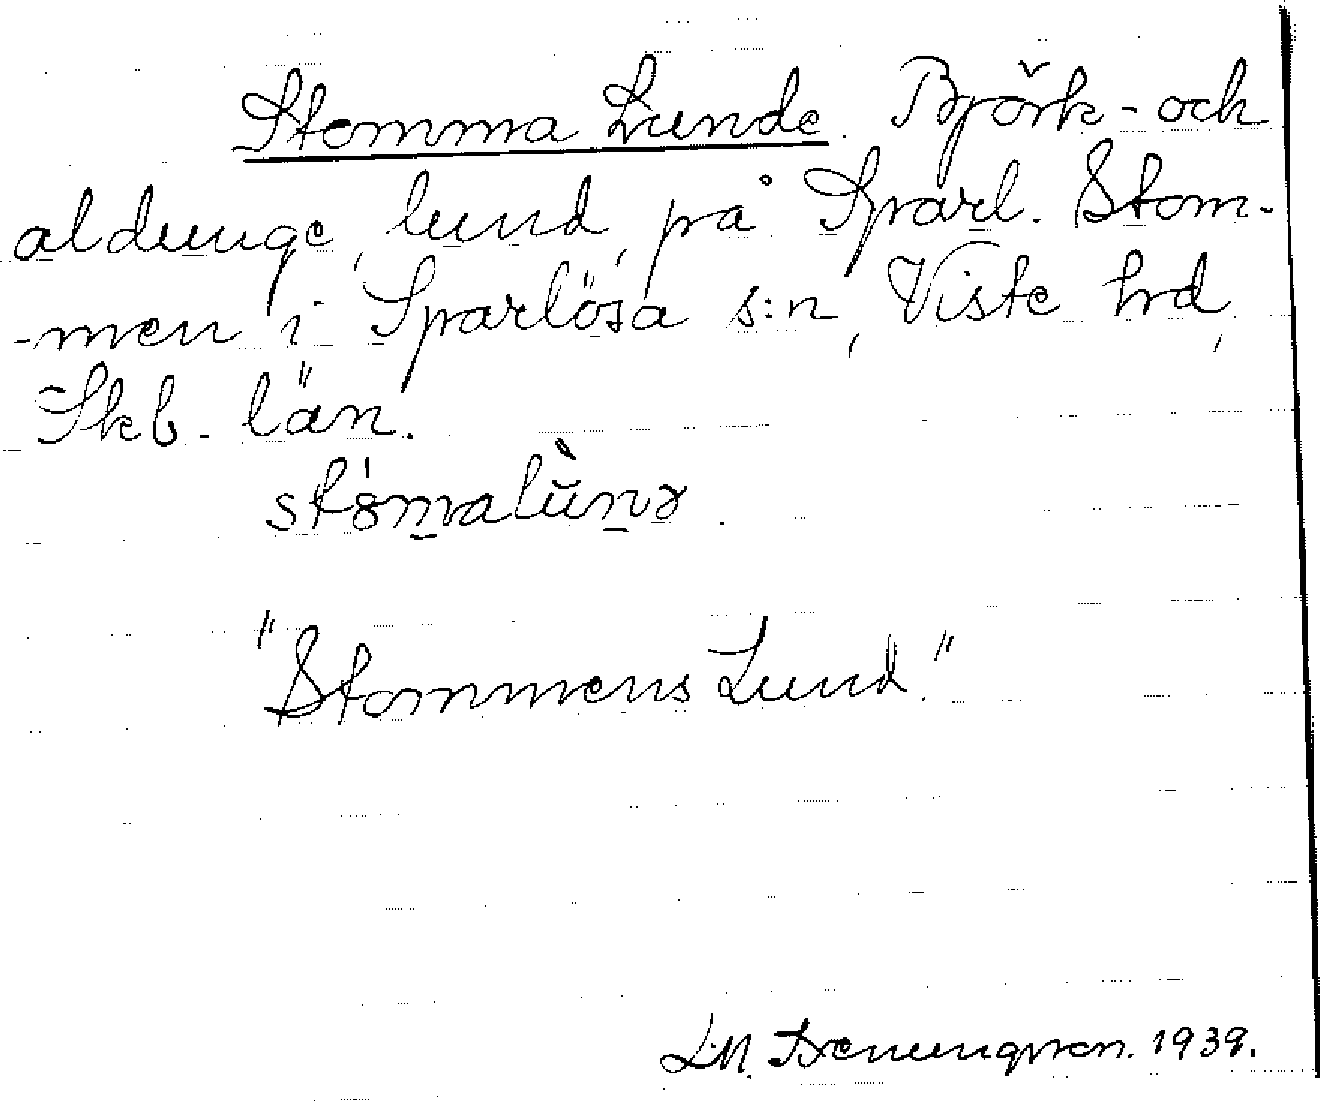 Stomma Lunde. Björk- och
aldunge, lund, på Sparl. Stom-
-men i Sparlösa s:n, Viste hd,
Skb. län.
"Stommens Lund."
1939.